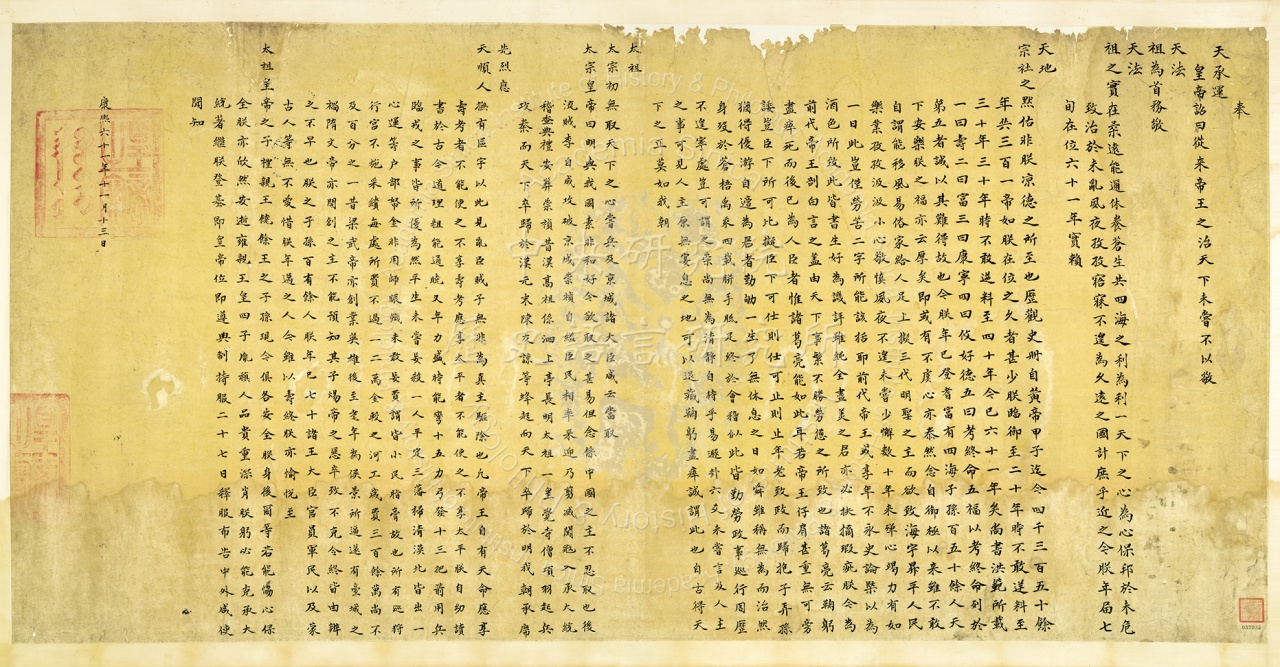 奉
天承運
皇帝詔曰從來帝王之治天下未嘗不以敬
天法
祖為首務敬
天法
祖之實在柔遠能邇休養蒼生共四海之利為利一天下之心為心保邦於未危
致治於未亂夙夜孜孜寤寐不遑為久遠之國計庶乎近之今朕年屆七
旬在位六十一年實賴
天地
宗社之默佑非朕涼德之所至也歷觀史冊自黃帝甲子迄今四千三百五十餘
年共三百一帝如朕在位之久者甚少朕臨御至二十年時不敢逆料至
三十年三十年時不敢逆料至四十年今已六十一年矣尚書洪範所載
一曰壽二曰富三曰康寧四曰攸好德五曰考終命五福以考終命列於
第五者誠以其難得故也今朕年已登耆富有四海子孫百五十餘人天
下安樂朕之福亦云厚矣即或有不虞心亦泰然念自御極以來雖不敢
自謂能移風易俗家給人足上擬三代明聖之主而欲致海宇昇平人民
樂業孜孜汲汲小心敬慎夙夜不遑未嘗少懈數十年來殫心竭力有如
一日此豈僅勞苦二字所能該括耶前代帝王或享年不永史論槩以為
酒色所致此皆書生好為譏評雖純全盡美之君亦必抉摘瑕疵朕今為
前代帝王剖白言之蓋由天下事繁不勝勞憊之所致也諸葛亮云鞠躬
盡瘁死而後已為人臣者惟諸葛亮能如此耳若帝王仔肩甚重無可旁
諉豈臣下所可比擬臣下可仕則仕可止則止年老致政而歸抱子弄孫
猶得優游自適為君者勤劬一生了無休息之日如舜雖稱無為而治然
身歿於蒼梧禹乘四載胼手胝足終於會稽似此皆勤勞政事巡行周歷
不遑寧處豈可謂之崇尚無為清靜自持乎易遯卦六爻未嘗言及人主
之事可見人主原無宴息之地可以退藏鞠躬盡瘁誠謂此也自古得天
下之正莫如我朝
太祖
太宗初無取天下之心嘗兵及京城諸大臣咸云當取
太宗皇帝曰明與我國素非和好今欲取之甚易但念係中國之主不忍取也後
流賊李自成攻破京城崇禎自縊臣民相率來迎乃翦滅闖寇入承大統
稽查典禮安葬崇禎昔漢高祖係泗上亭長明太祖一皇覺寺僧項羽起兵
攻秦而天下卒歸於漢元末陳友諒等蜂起而天下卒歸於明我朝承席
先烈應
天順人撫有區宇以此見亂臣賊子無非為真主驅除也凡帝王自有天命應享
壽考者不能使之不享壽考應享太平者不能使之不享太平朕自幼讀
書於古今道理粗能通曉又年力盛時能彎十五力弓發十三把箭用兵
臨戎之事皆所優為然平生未嘗妄殺一人平定三藩掃清漠北皆出一
心運籌戶部帑金非用師賑饑未敢妄費謂皆小民脂膏故也所有巡狩
行宮不施采繢每處所費不過一二萬金較之河工歲費三百餘萬尚不
及百分之一昔梁武帝亦創業英雄後至耄年為侯景所逼遂有臺城之
禍隋文帝亦開創之主不能預知其子煬帝之惡卒致不克令終皆由辨
之不早也朕之子孫百有餘人朕年已七十諸王大臣官員軍民以及蒙
古人等無不愛惜朕年邁之人今雖以壽終朕亦愉悅至
太祖皇帝之子禮親王饒餘王之子孫現今俱各安全朕身後爾等若能惕心保
全朕亦欣然安逝雍親王皇四子胤禛人品貴重深肖朕躬必能克承大
統著繼朕登基即皇帝位即遵典制持服二十七日釋服布告中外咸使
聞知
康熙六十一年十一月十三日
中央研究院
歷史語言研究所
037032